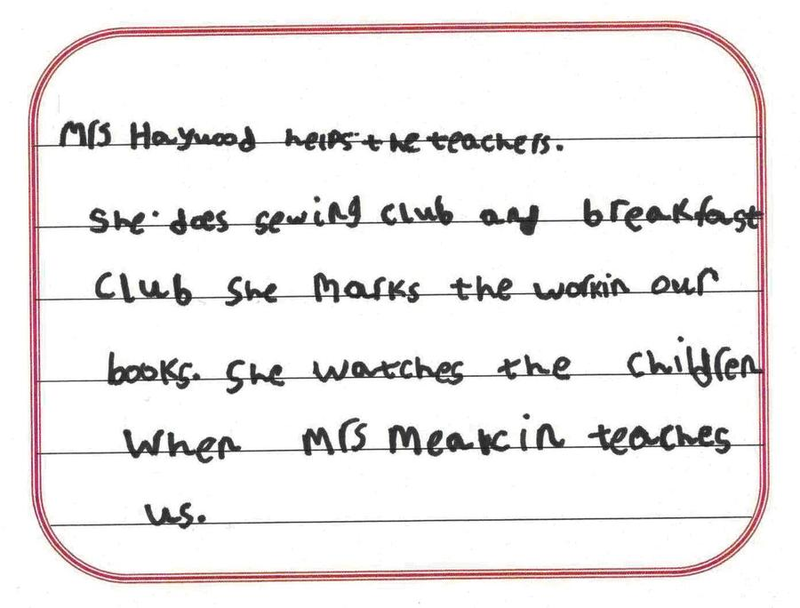 Mrs Haywood helps the teachers.
She does sewing club and breakfast
club she marks the workin our
books. She watches the children
When Mrs Meakin teaches
us.